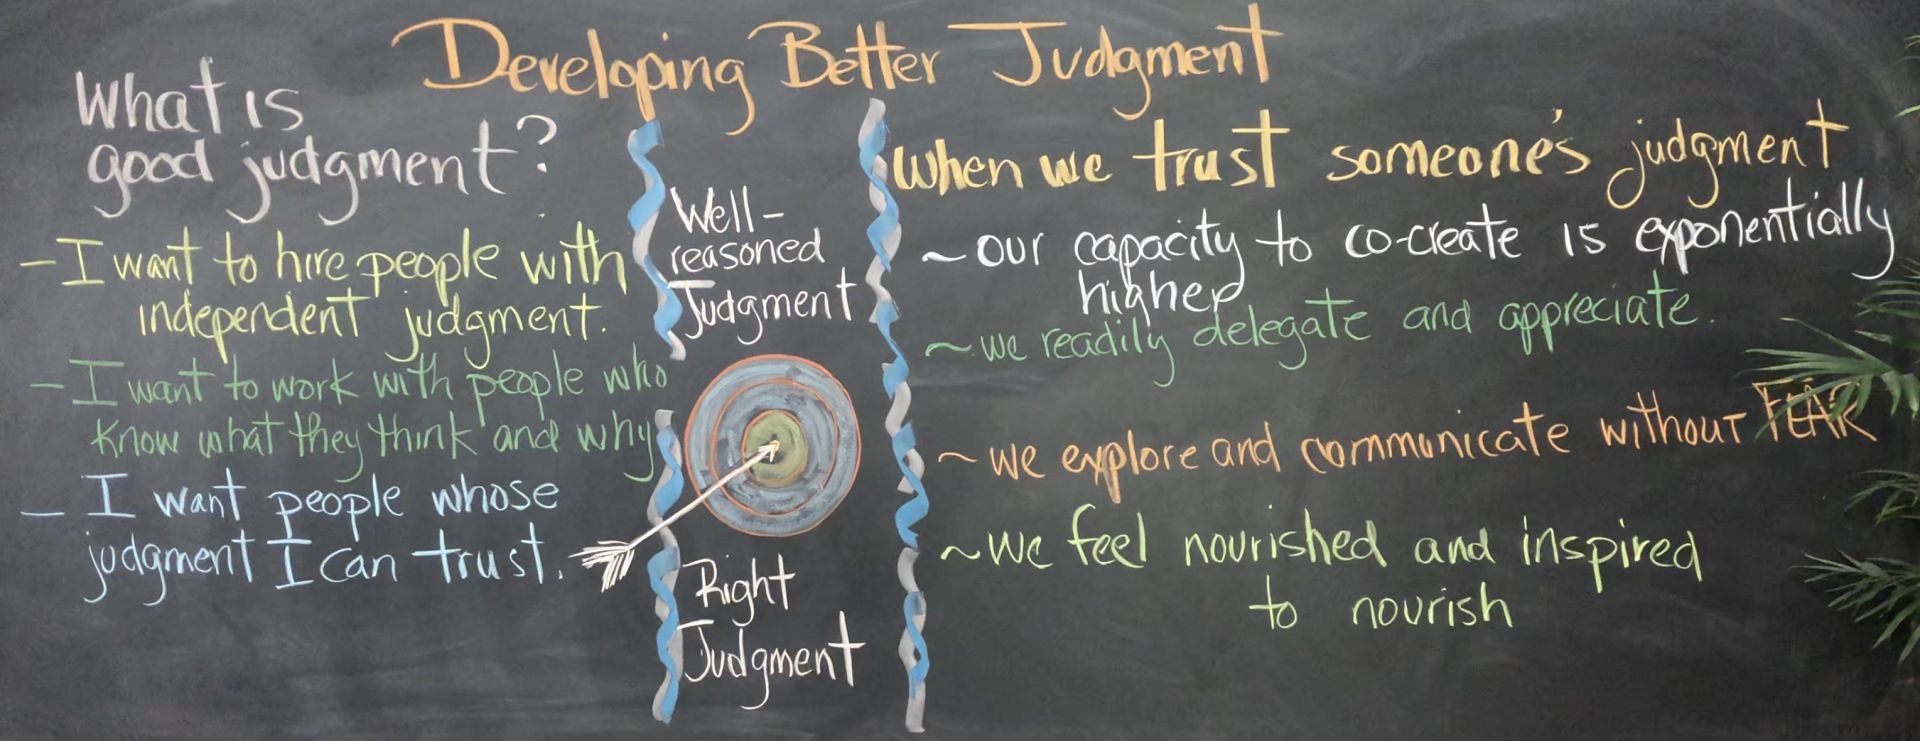 Developing Better Judgment
What is
good judgment?
- I want to hire people with
independent judgment.
- I want to work with people who
know what they think and why
- I want people whose
judgment I can trust.
Well-
reasoned
Judgment
Right
Judgment
when we trust someone's judgment
~ our capacity to co-create is exponentially
higher
~ we readily delegate and appreciate.
~ we explore and communicate without FEAR
~ we feel nourished and inspired
to nourish